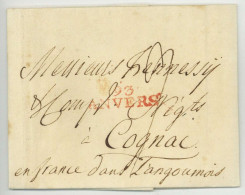 Messieurs hennessy
93
ANVERS
& Comp.e Negts
à
Cognac
en france dans L'angoumois